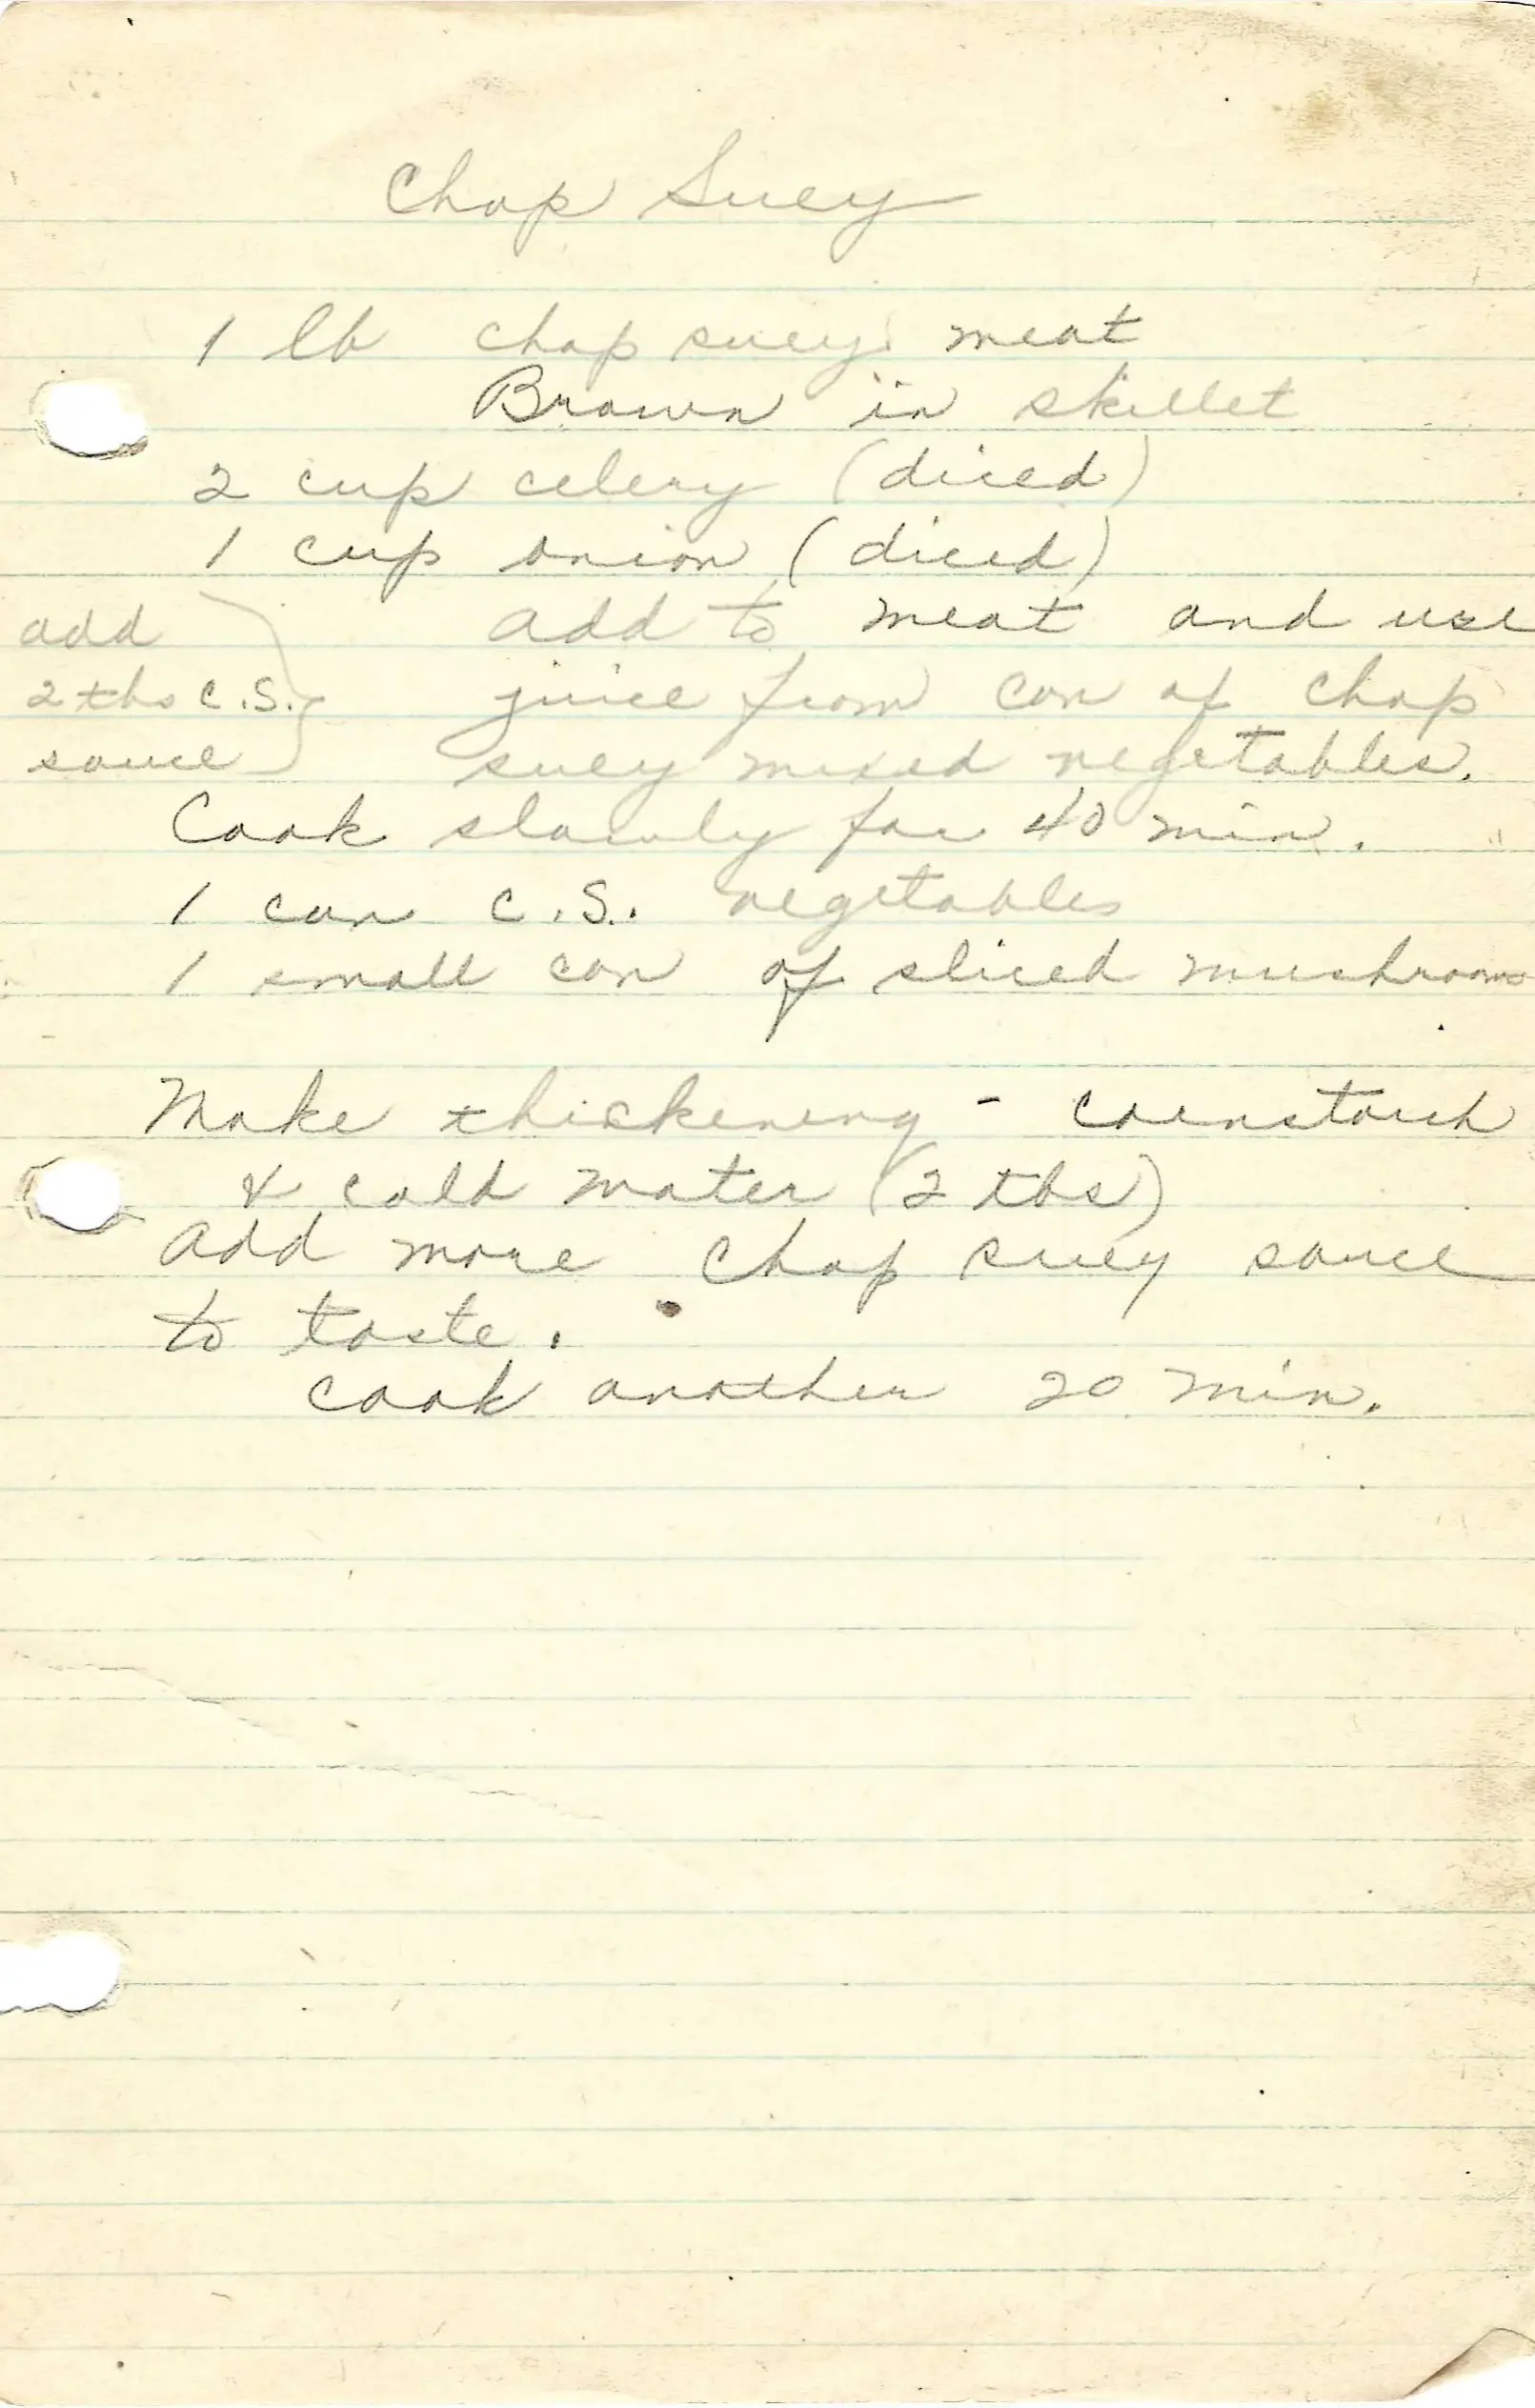 Chop Suey
1 lb chop suey meat
Brown in skillet
2 cup celery (diced)
1 cup onion (diced)
add to meat and use
add
juice from can of chop
2 tbs C.S.
suey mixed vegetables.
sauce
Cook slowly for 40 min.
1 can C.S. vegetables
1 small can of sliced mushrooms
Make thickening - cornstarch
& cold water (2 tbs)
add more chop suey sauce
to taste.
cook another 20 min.